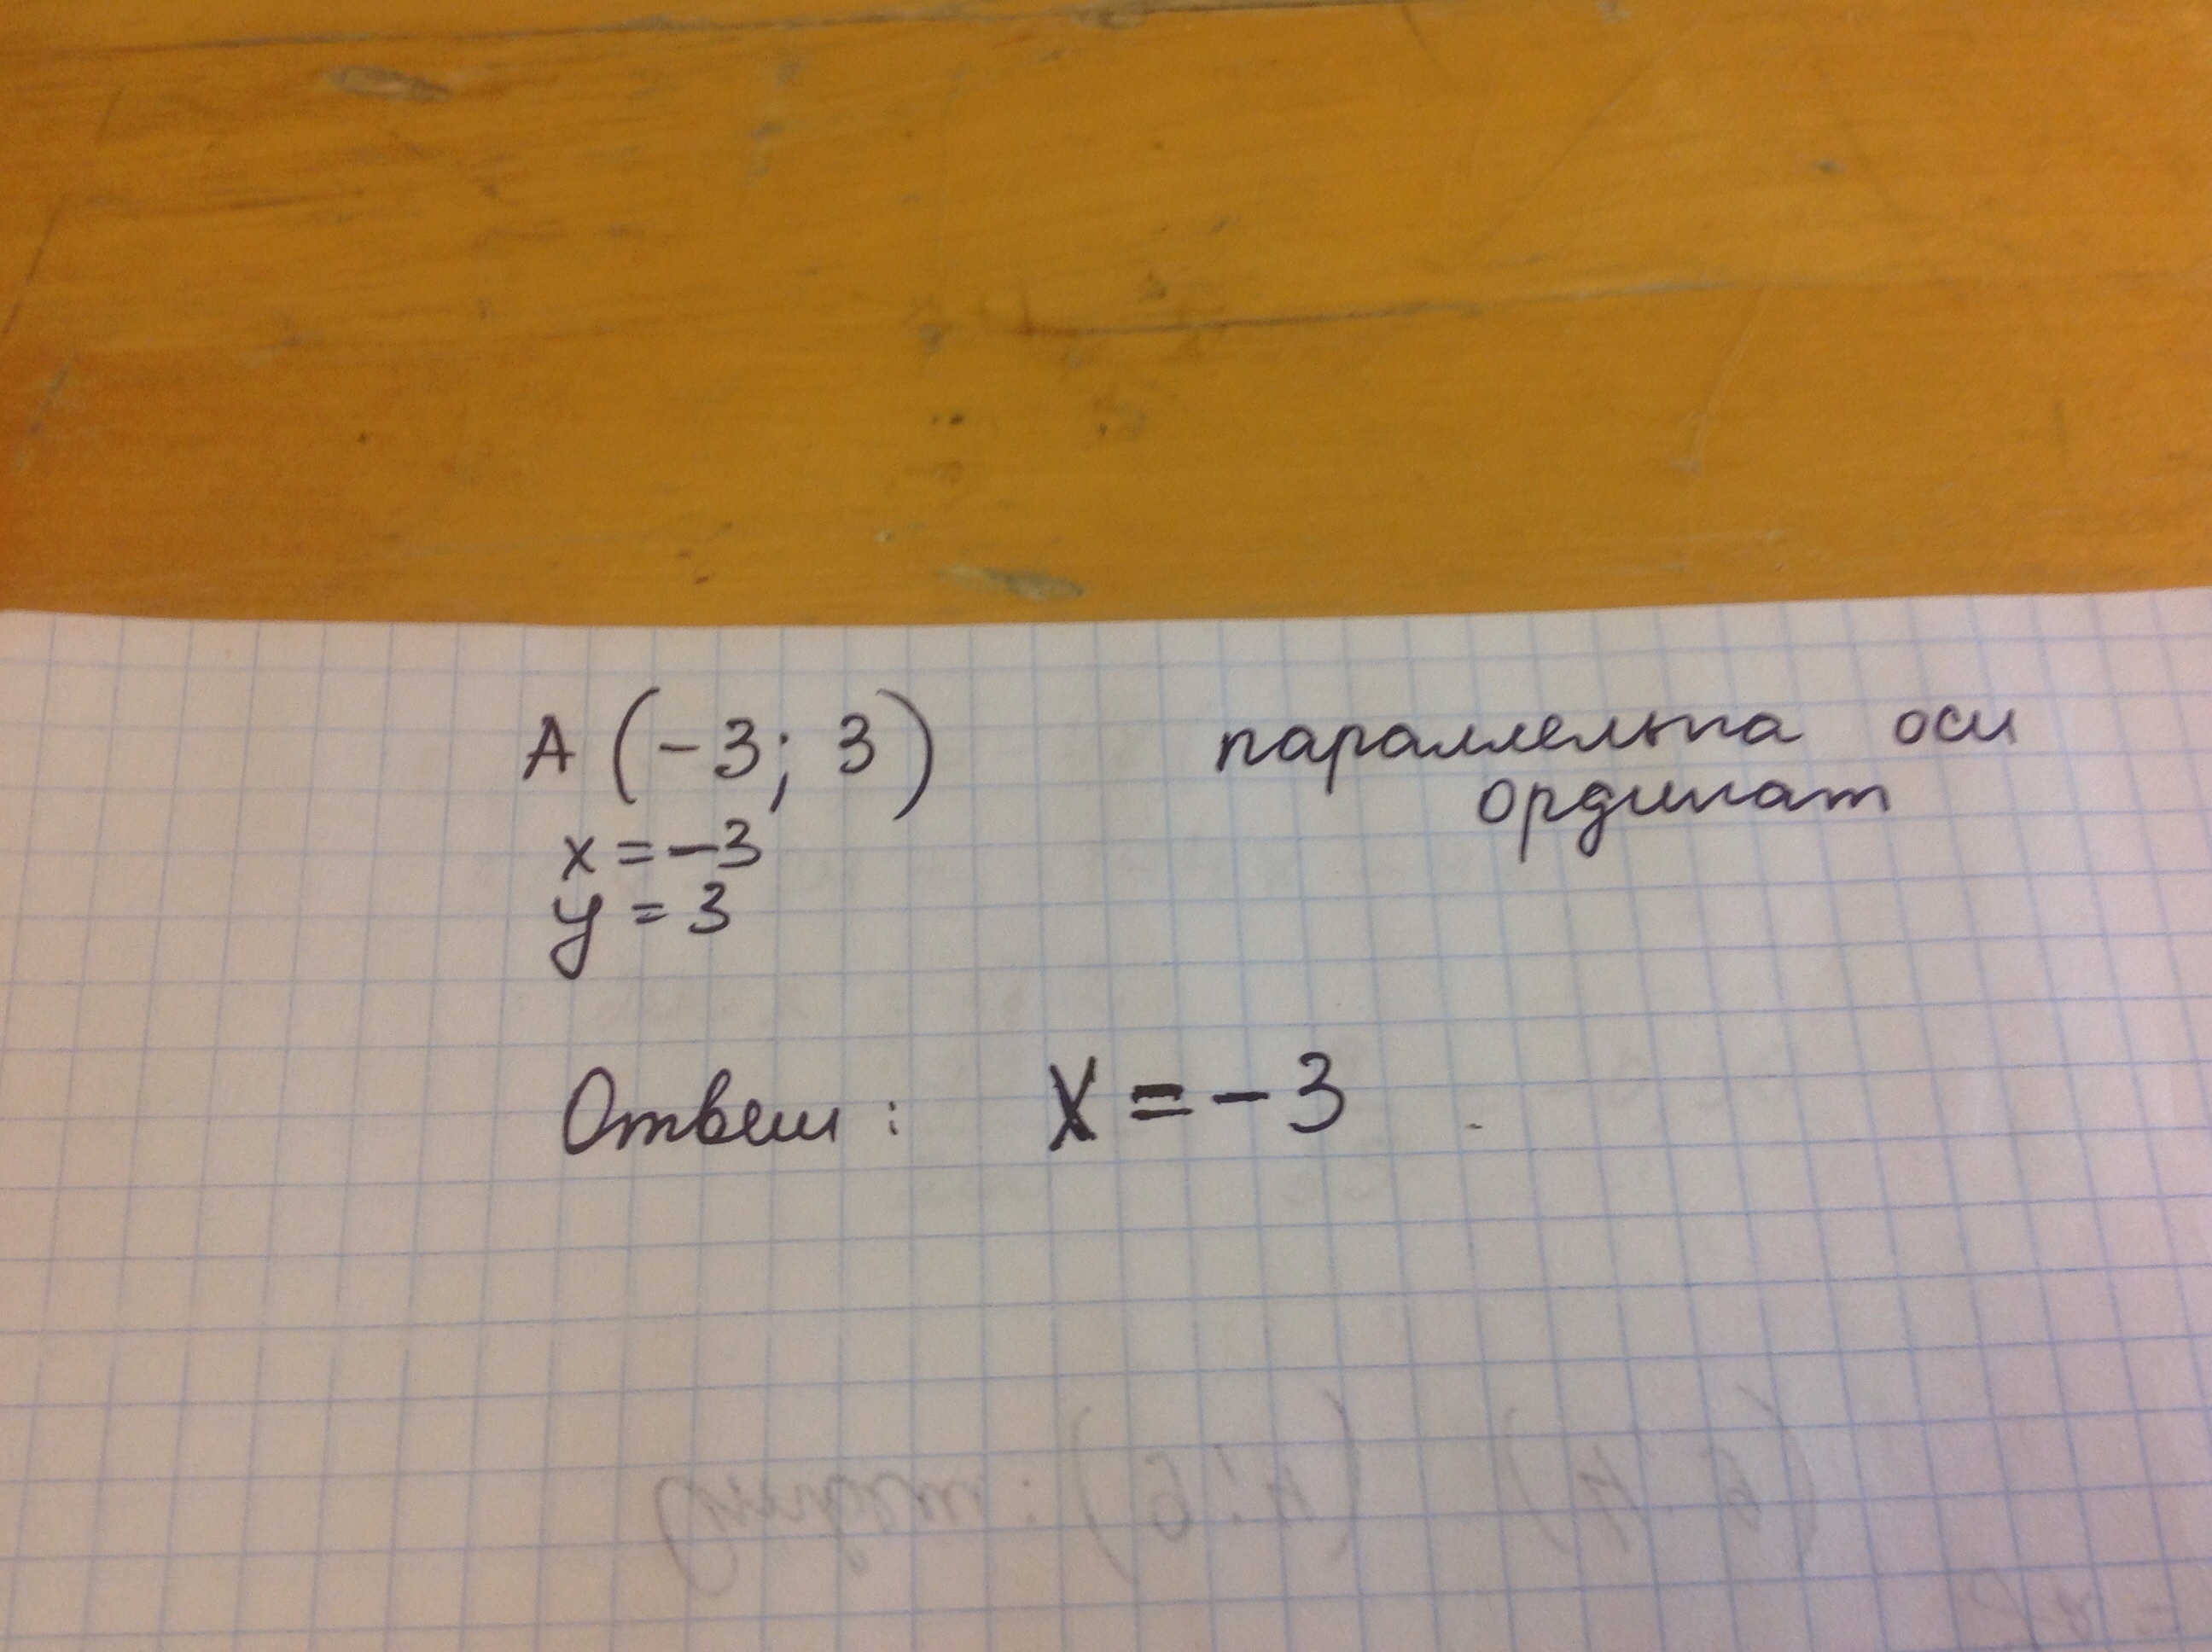 A (-3; 3)
параллельна оси
ординат
x = -3
y = 3
Ответ: X = -3